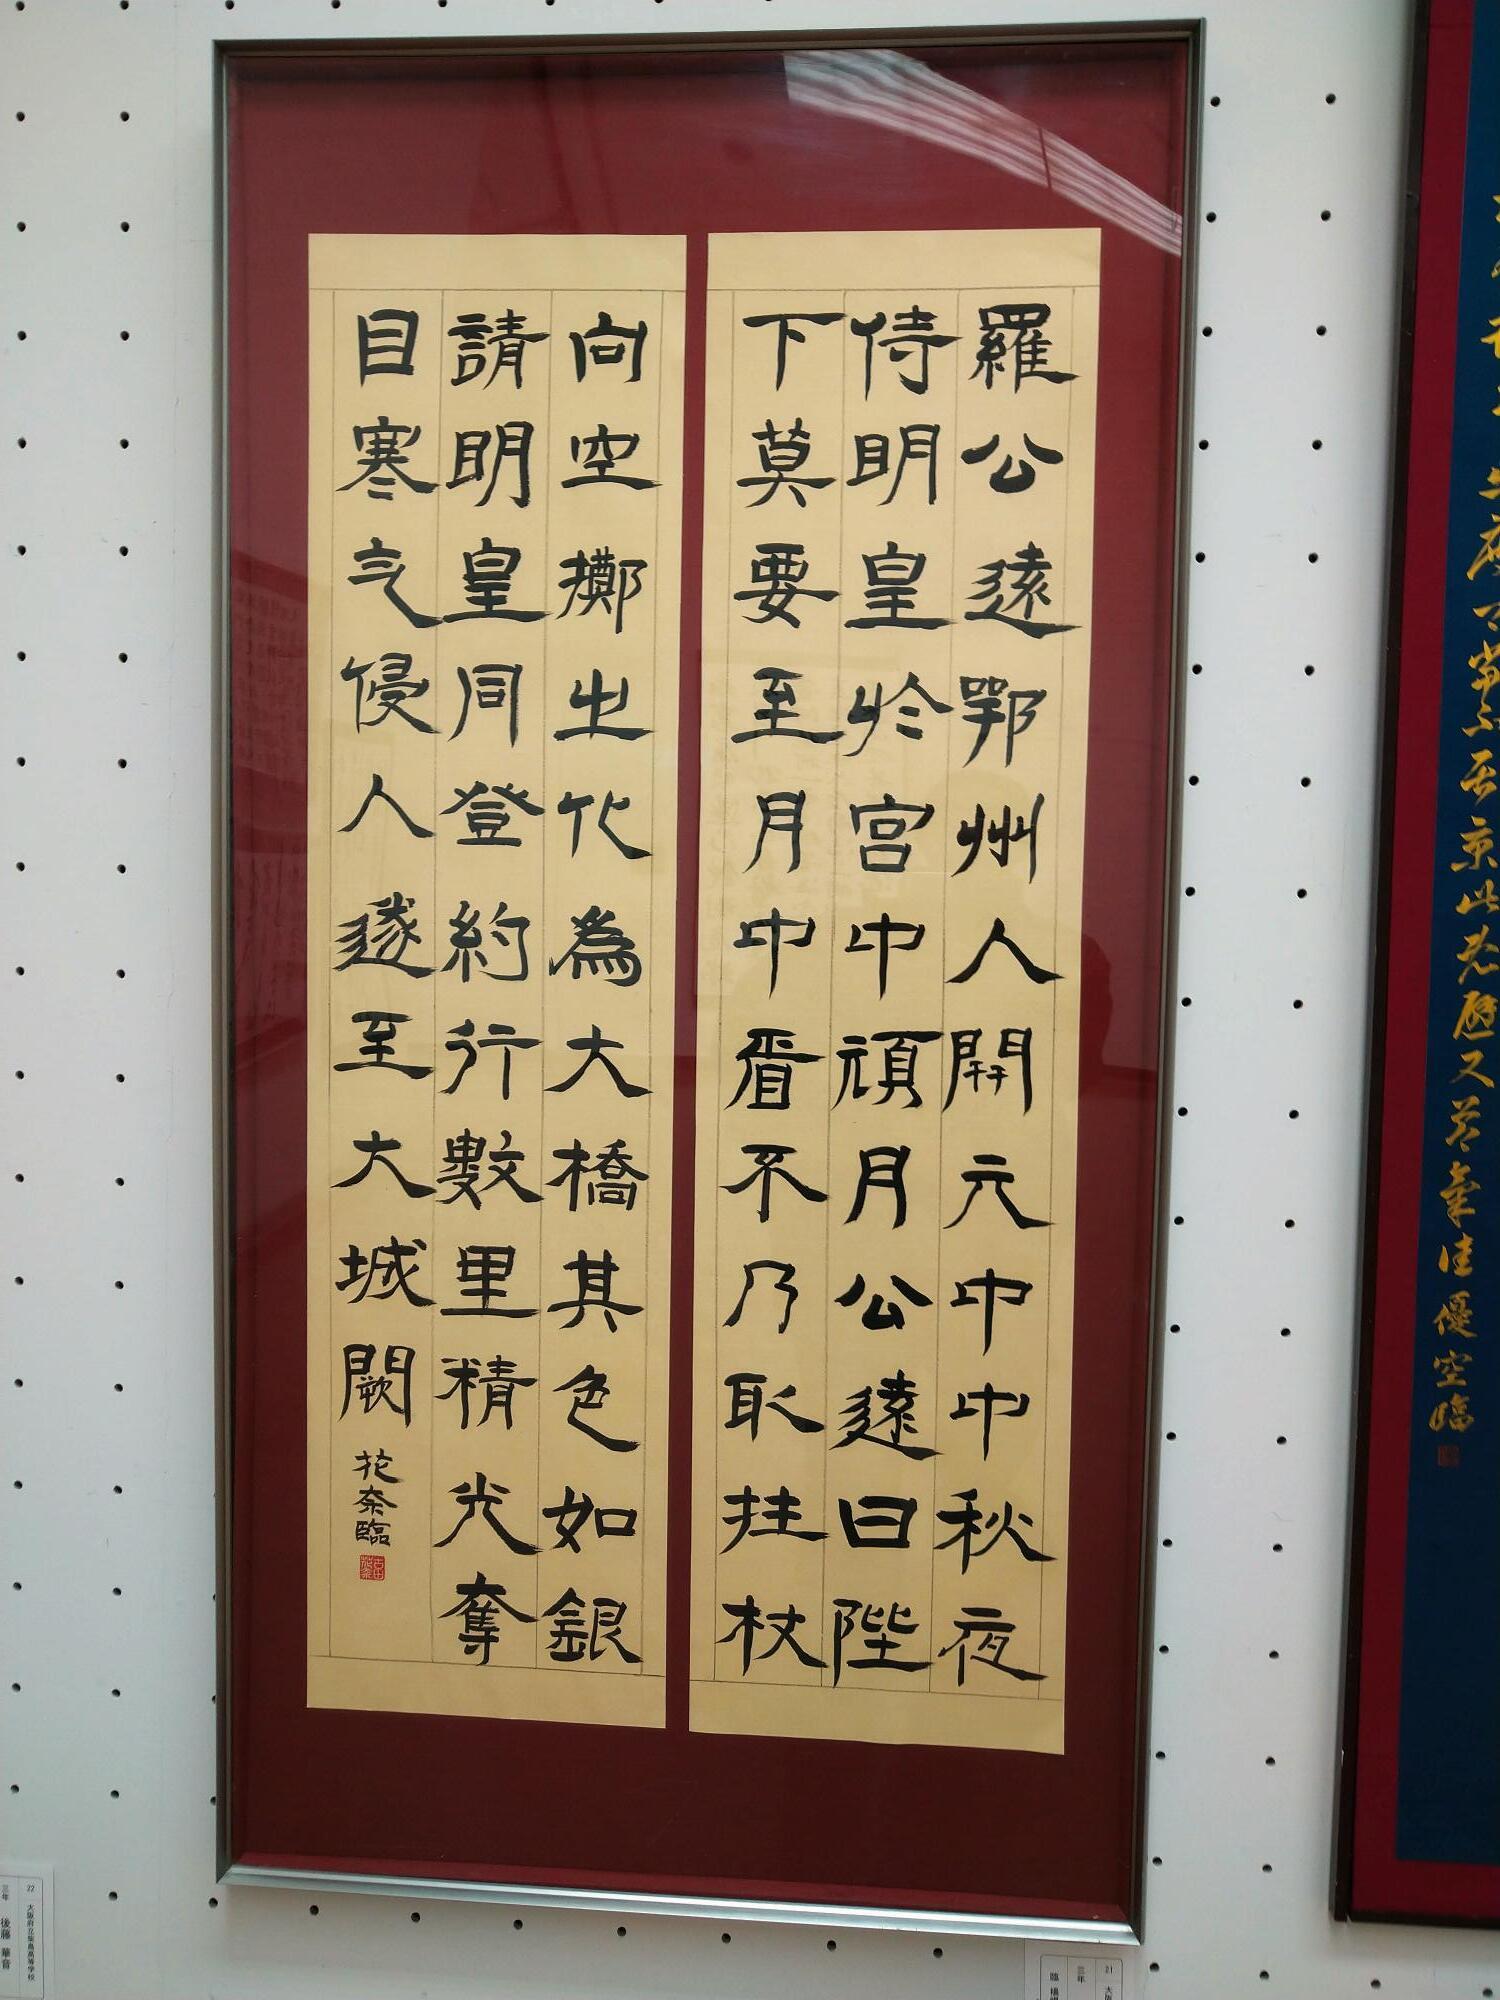 羅公遠鄂州人開元中中秋夜
侍明皇於宮中頑月公遠曰陛
下莫要至月中看不乃取拄杖
向空擲之化為大橋其色如銀
請明皇同登約行數里精光奪
目寒气侵人遂至大城闕
花奈臨
22 大阪府立柴島高等学校
三年 後藤 華音
21 大阪
三年
臨
又
優空臨